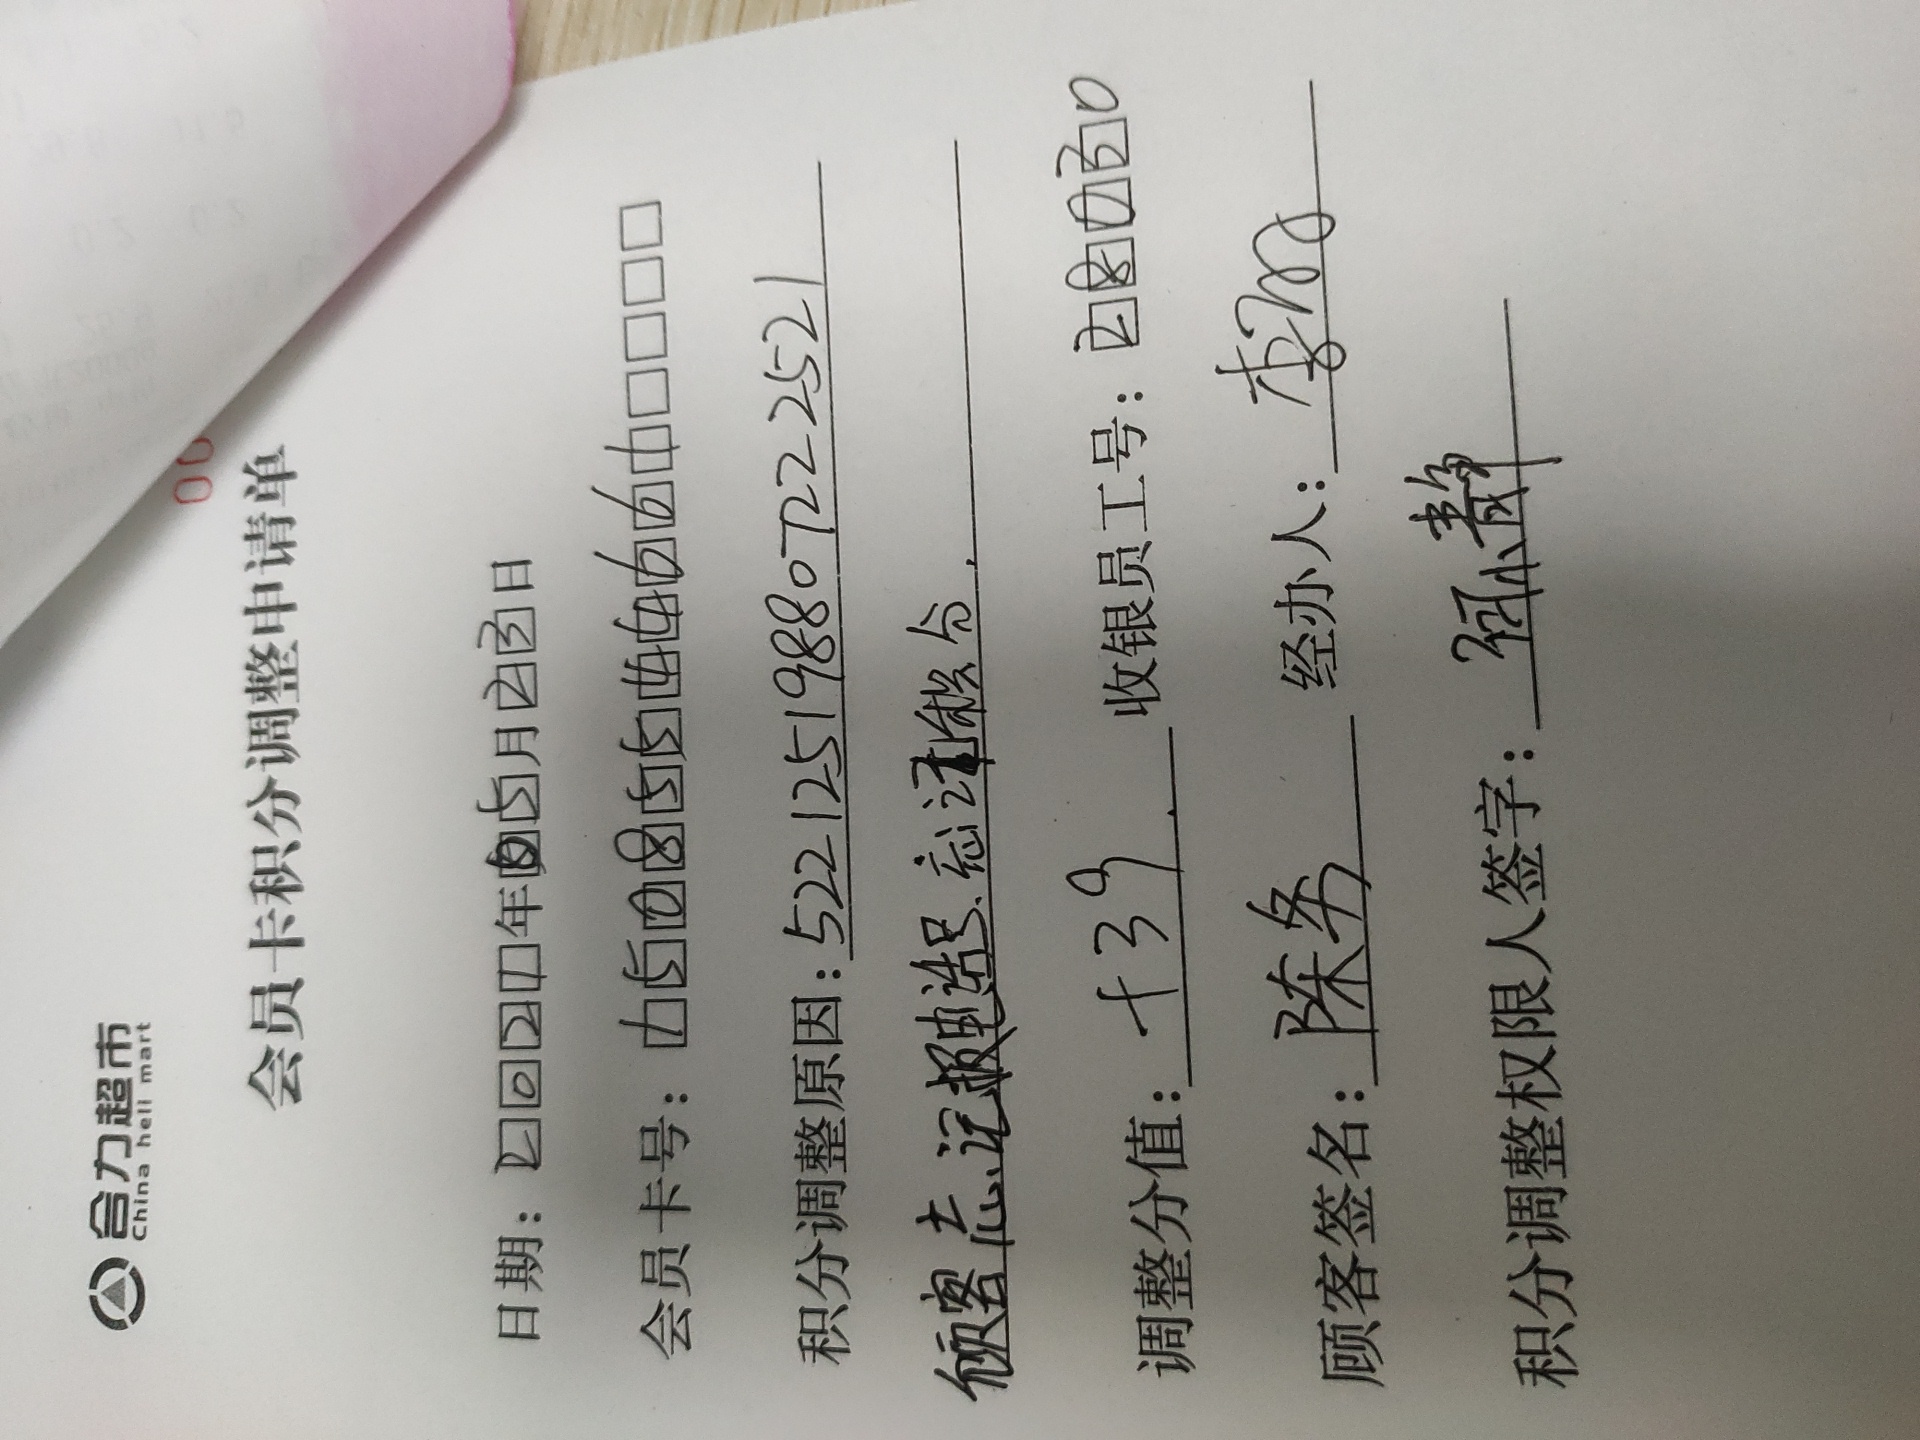 合力超市
China hell mart
00
会员卡积分调整申请单
日期：2021年05月23日
会员卡号：15085544661
积分调整原因：5221251988072 22521
顾客忘记报电话号.忘记积分.
调整分值：+39 收银员工号：28030
顾客签名：陈 经办人：李
积分调整权限人签字：孙静